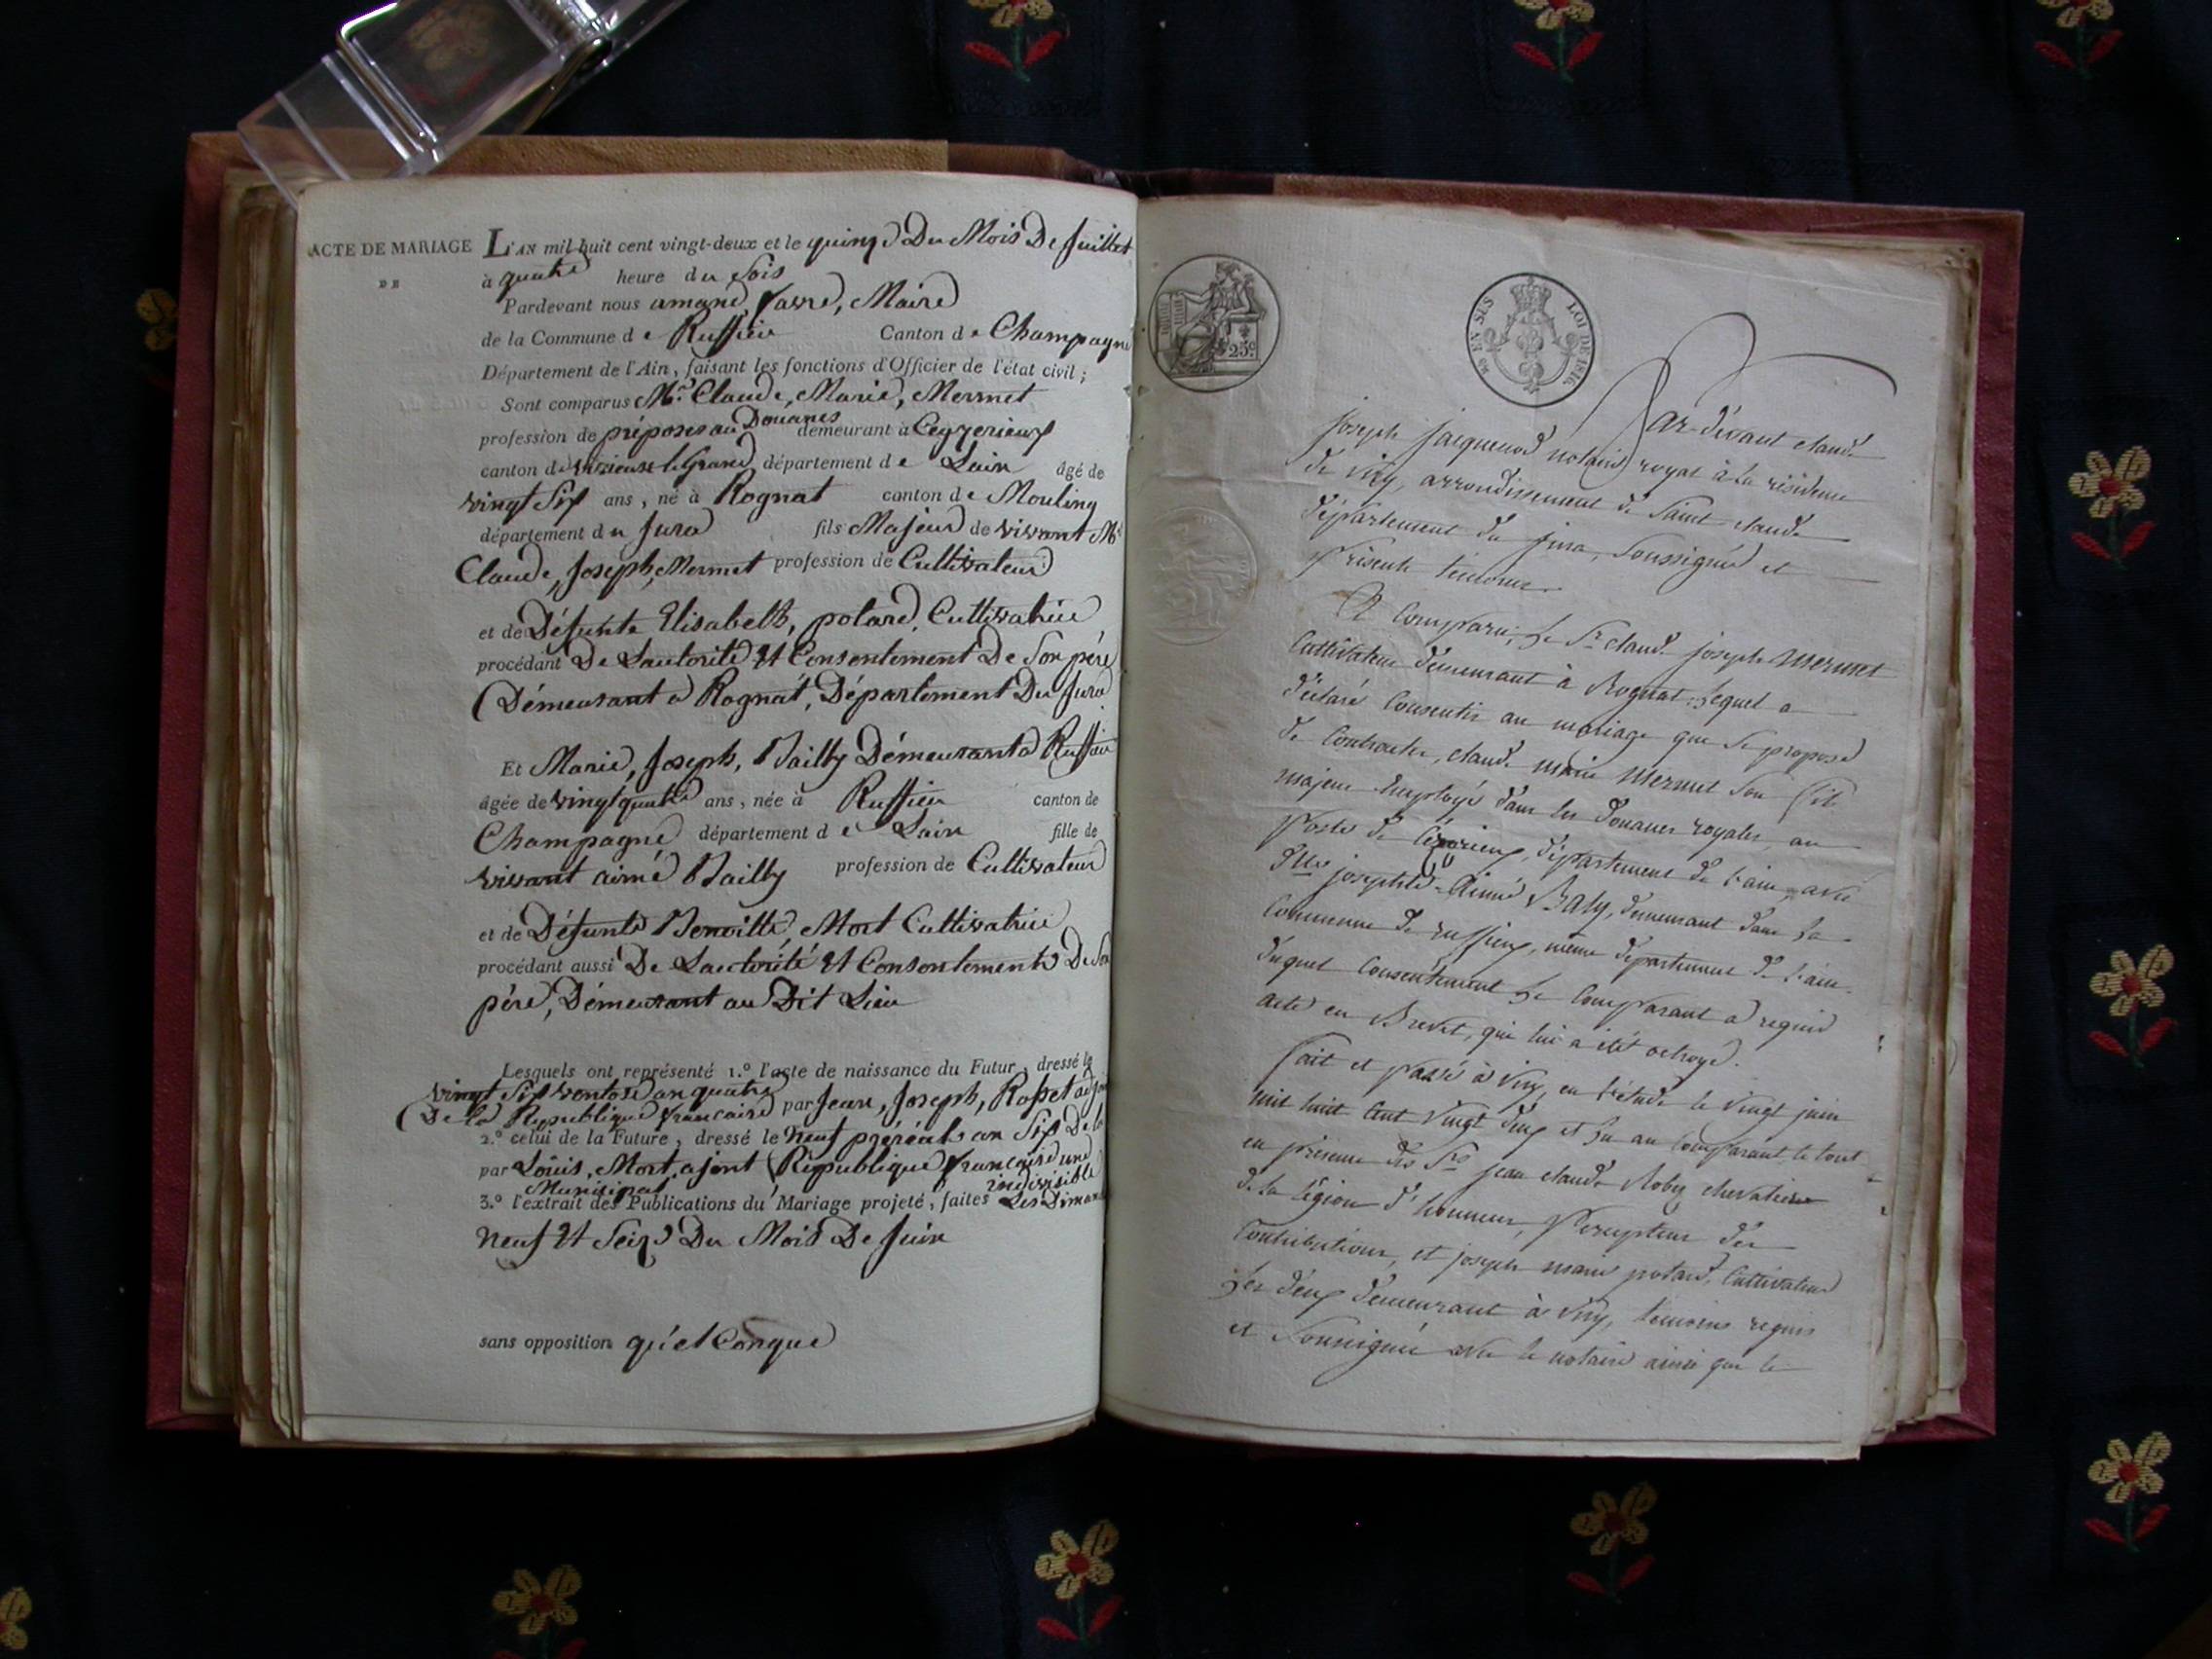 ACTE DE MARIAGE
DE
L'AN mil huit cent vingt-deux et le quinze Du Mois De Juillet
à quatre heure du Soir
Pardevant nous amand, favre, Maire
de la Commune de Ruffieu Canton de Champagne
Département de l'Ain, faisant les fonctions d'Officier de l'état civil ;
Sont comparus Mr. Claude, Marie, Mermet
profession de préposes au Douanes demeurant à Ceyzerieux
canton de virieux le Grand département de Lain âgé de
vingt Six ans, né à Rognat canton de Mouling
département du Jura fils Majeur de vivant Mr
Claude, Joseph, Mermet profession de Cultivateur
et de Défunte Elisabeth, polard, Cultivatrice
procédant De Lautorité Et Consentement De Son père
(Démeurant a Rognat, Département Du Jura
Et Marie, Joseph, Bailly Démeurant a Ruffieu
âgée de vingt quatre ans, née à Ruffieu canton de
Champagne département de Lain fille de
vivant aimé Bailly profession de Cultivateur
et de Défunte Benoitte, Mort Cultivatrice
procédant aussi De Lautorité Et Consentement De Son
père, Démeurant au Dit Lieu
Lesquels ont représenté 1.° l'acte de naissance du Futur, dressé le
vingt Six ventose an quatre
(De la Republique francaise par Jean, Joseph, Rosset adjoint
2.° celui de la Future, dressé le neuf préréal an Six De la
par Louis, Mort, ajont (République francaise une
Municipal indivisible
3.° l'extrait des Publications du Mariage projeté, faites Les Dimanches
neuf Et Seize Du Mois De Juin
sans opposition quélconque
25 c
EN SUS
LOI DE 1816
Par-dévant claude
joseph jacquenod notaire royal à la résidence
de viry, arrondissement de Saint claude
département du jura, Soussigné et
présents témoins.
A Comparu, Le Sr. claude joseph Mermet
Cultivateur démeurant à Rognat, Lequel a
déclaré Consentir au mariage que Se propose
de Contracter, claude marie Mermet Son fils
majeur Employé dans les Douanes royales, au
poste de Cézerieux, département de l'ain, avec
Dlle josephte-Aimée Baly, demeurant dans La
Commune de ruffieux, même département de l'ain.
duquel Consentement Le Comparant a requis
acte en Brevet, qui lui a été octroyé.
fait et passé à Viry, en l'étude le vingt juin
mil huit Cent vingt deux et Lu au Comparant, le tout
en présence des Srs jean claude Roby chevalier
de la Légion d'honneur, percepteur des
Contributions, et joseph marie polard, Cultivateur
Les deux demeurant à viry, temoins requis
et Soussignés avec le notaire ainsi que le